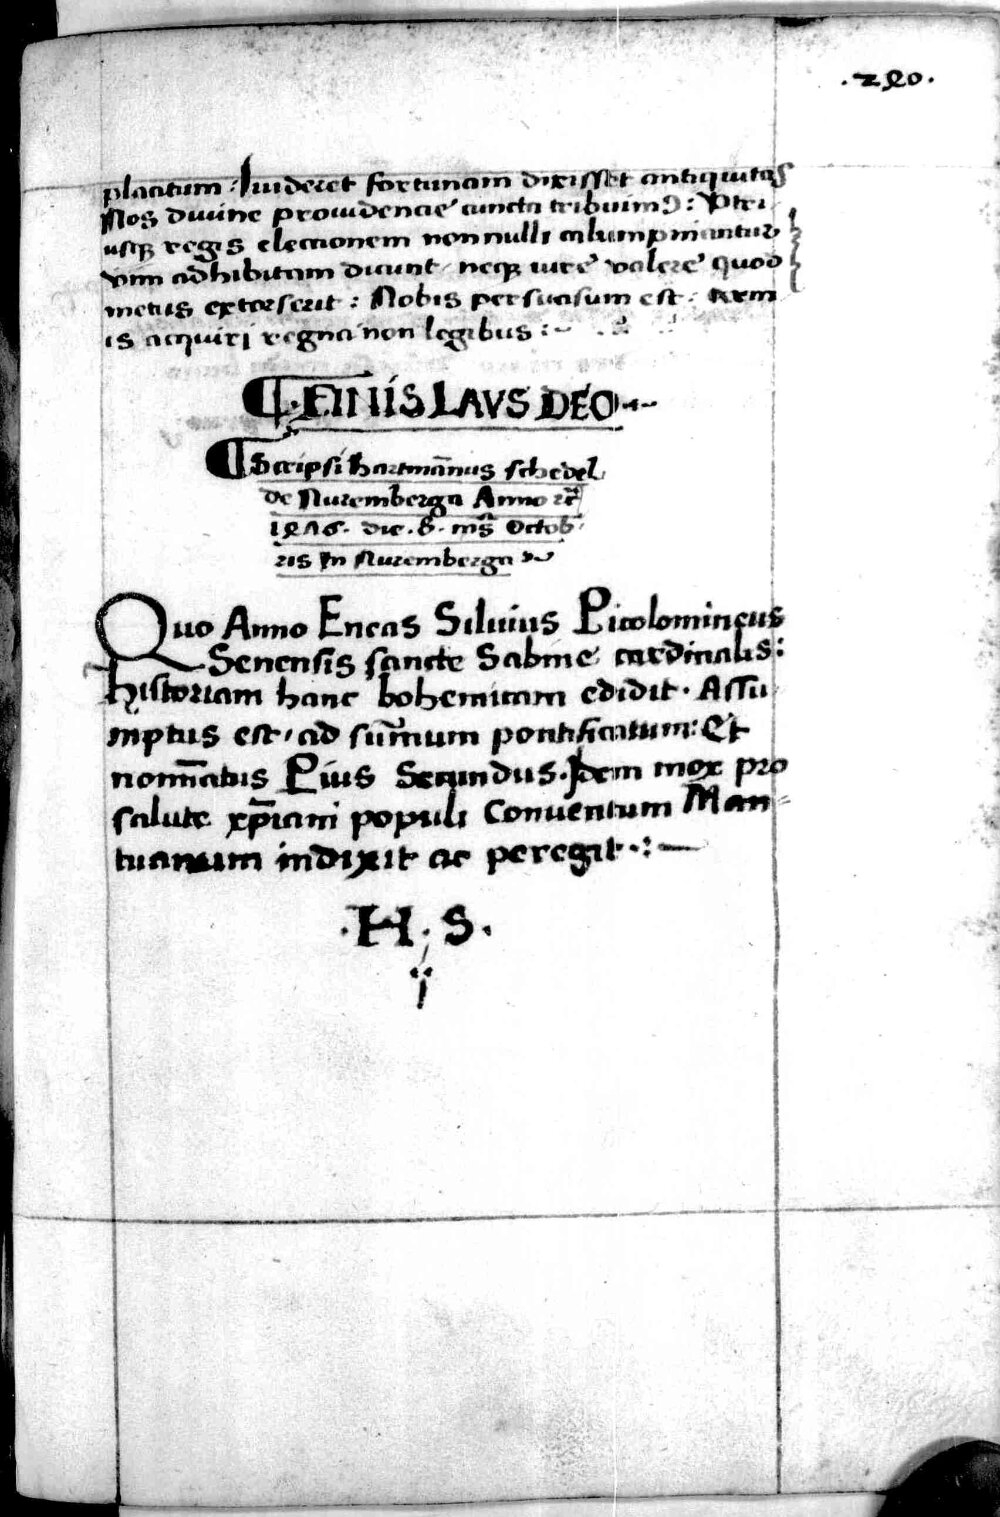 .240.
placitum : Iuideret fortunam dixisset antiquitas
Nos diuine prouidencie cuncta tribuimꝰ : Vtri
usqꝫ regis electionem nonnulli calumpniantur
vim adhibitam dicunt / neqꝫ iure valere quod
metus extorserit : Nobis persuasum est / arm
is acquiri regna non legibus :~
¶ . FINIS LAVS DEO .~
¶ Scripsi hartmānus schedel
de Nuremberga Anno
die . 8 . Octob
ris In Nuremberga
Quo Anno Eneas Siluius Picolomineus
Senensis sancte Sabine cardinalis :
historiam hanc bohemicam edidit . Assu
mptus est / ad sum̄um pontificatum : Et
nom̄atus Pius Secundus . Idem mox pro
salute xp̄iani populi Conuentum Man=
tuanum indixit ac peregit .: —
. H . S .